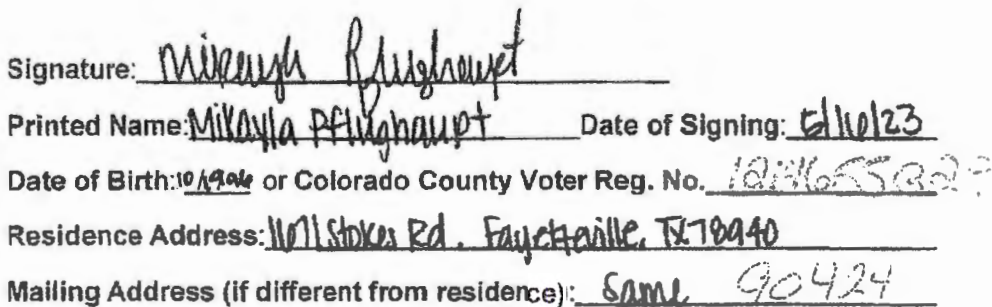 Signature: Mikayla Pflughaupt
Printed Name: Mikayla Pflughaupt Date of Signing: 5/16/23
Date of Birth: or Colorado County Voter Reg. No.
Residence Address: Stokes Rd. Fayetteville, TX 78940
Mailing Address (if different from residence): Same 90424